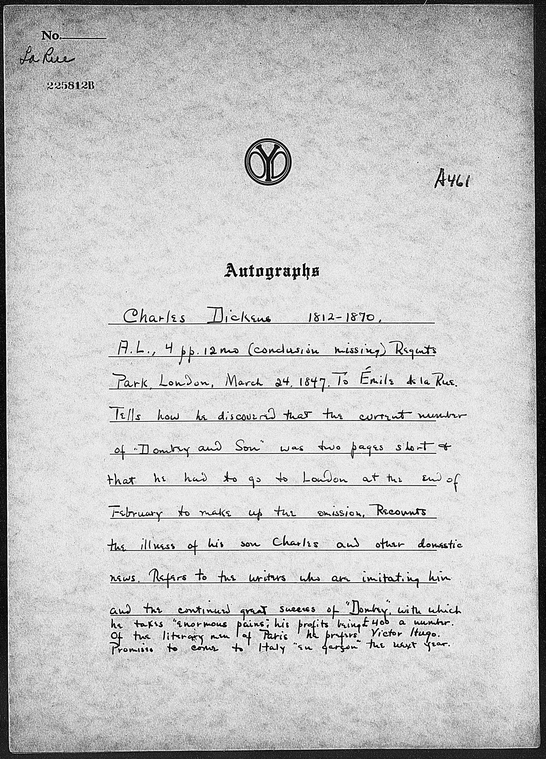 No.
La Rue
225812B
OYO
A461
Autographs
Charles Dickens 1812-1870.
A.L., 4 pp. 12mo (conclusion missing) Regents
Park, London, March 24, 1847. To Émile de la Rue.
Tells how he discovered that the current number
of "Dombey and Son" was two pages short &
that he had to go to London at the end of
February to make up the omission. Recounts
the illness of his son Charles and other domestic
news. Refers to the writers who are imitating him
and the continued great success of "Dombey" with which
he takes "enormous pains"; his profits being £400 a number.
Of the literary men of Paris he prefers Victor Hugo.
Promises to come to Italy "en garçon" the next year.